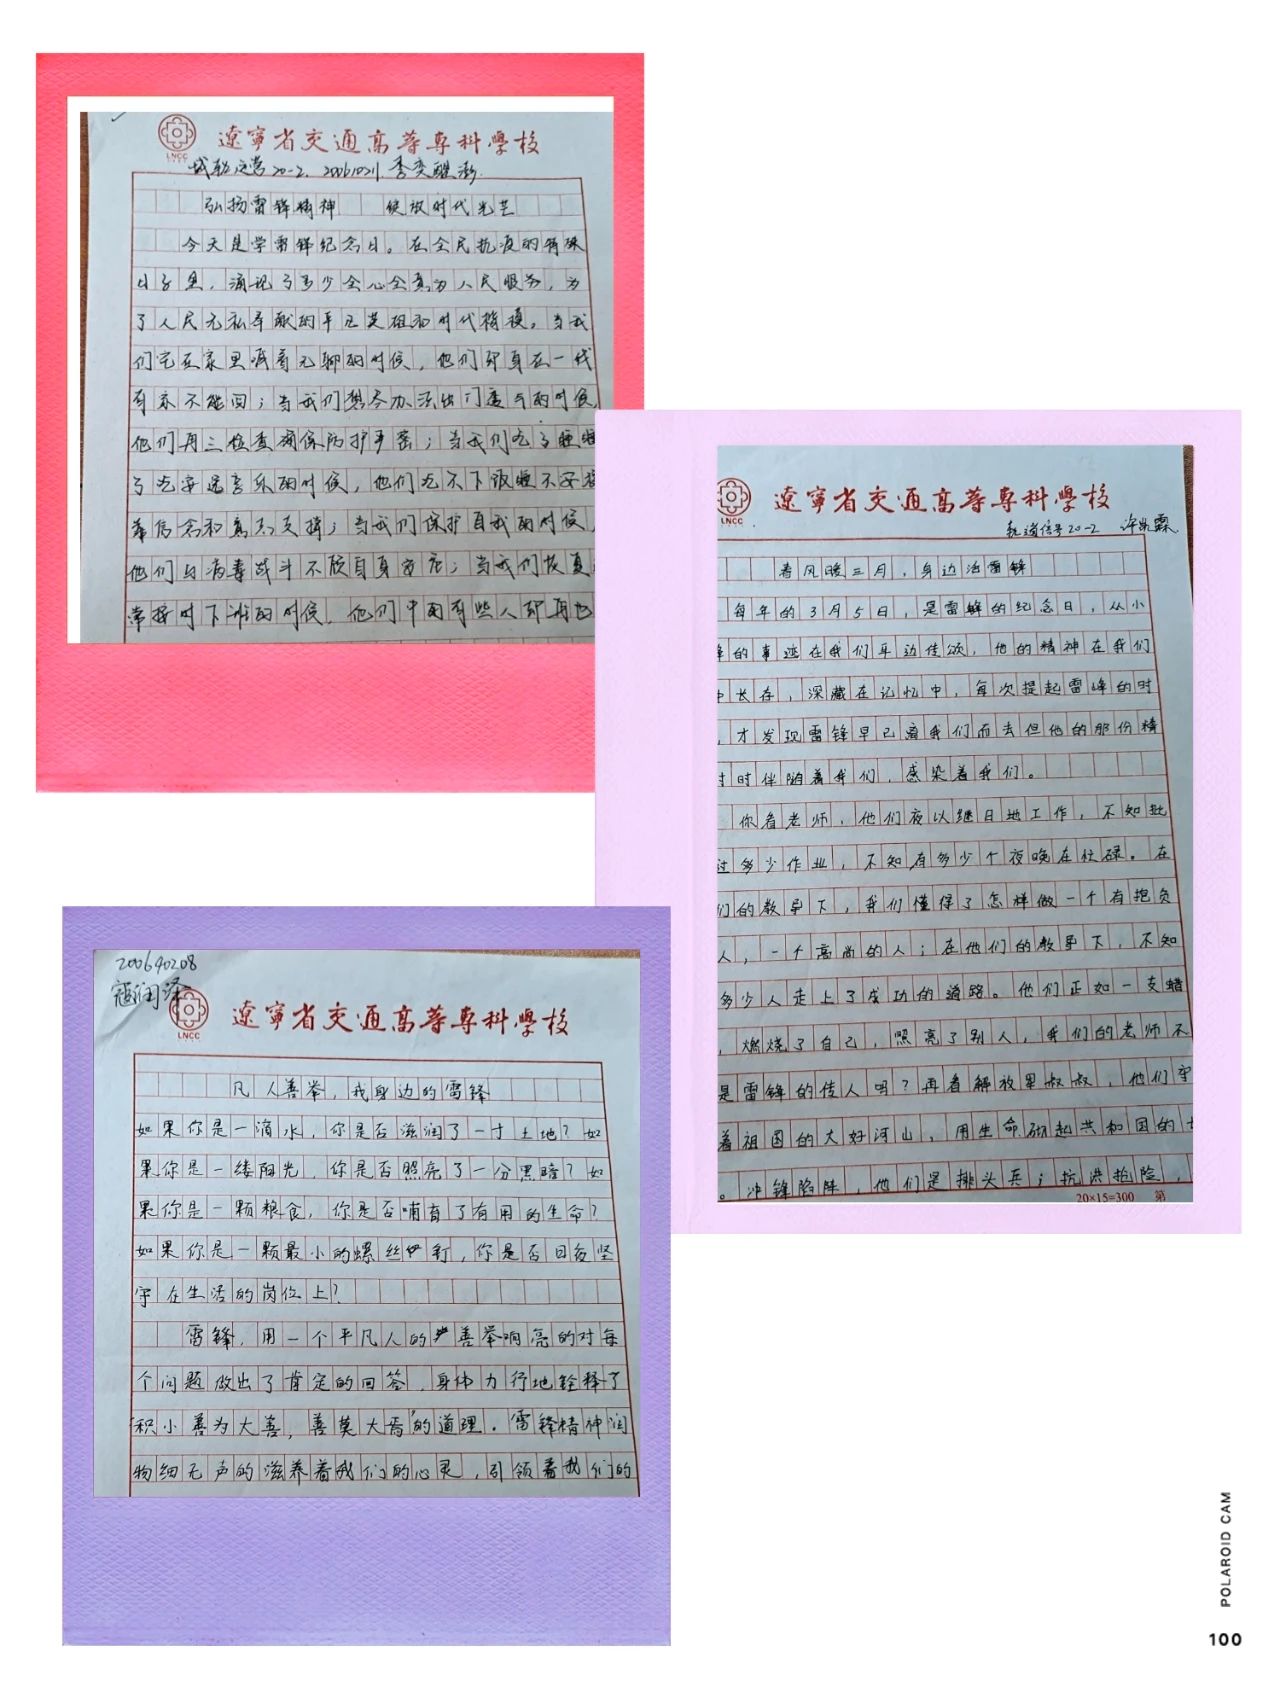 遼寧省交通高等專科學校
LNCC
城轨运营20-2. 20061021. 李奕
弘扬雷锋精神 绽放时代光芒
今天是学雷锋纪念日。在全民抗疫的特殊
日子里，涌现了多少全心全意为人民服务，为
了人民无私奉献的平凡英雄和时代楷模。当我
们宅在家里喊着无聊的时候，他们却身在一线
有家不能回；当我们想尽办法出门透气的时候
他们再三检查确保防护严密；当我们吃了睡睡
了吃安逸享乐的时候，他们吃不下饭睡不安稳
靠信念和意志支撑；当我们保护自我的时候，
他们与病毒战斗不顾自身安危；当我们恢复
常按时下班的时候，他们中的有些人却再也
遼寧省交通高等專科學校
LNCC
轨道信号20-2 许凯霖
春风暖三月，身边活雷锋
每年的3月5日，是雷锋的纪念日，从小
锋的事迹在我们耳边传颂，他的精神在我们
中长存，深藏在记忆中，每次提起雷峰的时
，才发现雷锋早已离我们而去但他的那份精
时时伴随着我们，感染着我们。
你看老师，他们夜以继日地工作，不知批
过多少作业，不知有多少个夜晚在忙碌。在
们的教导下，我们懂得了怎样做一个有抱负
人，一个高尚的人；在他们的教导下，不知
多少人走上了成功的道路。他们正如一支蜡
，燃烧了自己，照亮了别人，我们的老师不
是雷锋的传人吗？再看解放军叔叔，他们守
着祖国的大好河山，用生命砌起共和国的
。冲锋陷阵，他们是排头兵；抗洪抢险，
20×15=300 第
200640208
寇润泽
遼寧省交通高等專科學校
LNCC
凡人善举，我身边的雷锋
如果你是一滴水，你是否滋润了一寸土地？如
果你是一缕阳光，你是否照亮了一分黑暗？如
果你是一颗粮食，你是否哺育了有用的生命？
如果你是一颗最小的螺丝钉，你是否日夜坚
守在生活的岗位上？
雷锋，用一个平凡人的善举响亮的对每
个问题做出了肯定的回答，身体力行地诠释了
“积小善为大善，善莫大焉”的道理。雷锋精神润
物细无声的滋养着我们的心灵，引领着我们的
POLAROID CAM
100